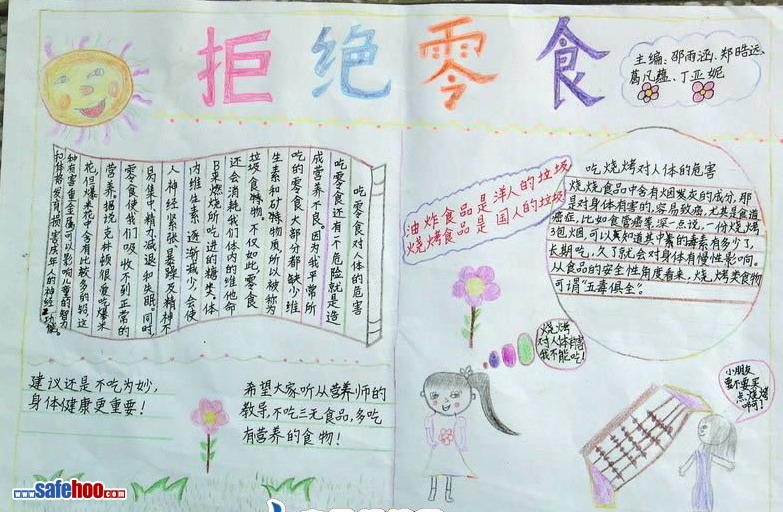 拒绝零食
主编：邵雨涵、郑晧远、
葛凡蕴、丁亚妮
吃零食对人体的危害
吃零食还有个危险就是造
成营养不良。因为我平常所
吃的零食大部分都缺少维
生素和矿特物质所以被称为
垃圾食特物。不仅如此零食
还会消耗我们体内的维他命
B来燃烧所吃进的糖类。体
内维生素逐渐减少，会使
人神经紧张、暴躁及精神不
易集中精力、减退和失眠。同时，
零食使我们吸收不到正常的
营养。据说克林顿很爱吃爆米
花，但爆米花中含有比较多的铅，这
种有害重金属可以影响儿童的智力
和体格发育，损害成年人的神经功能。
油炸食品是洋人的垃圾
烧烤食品是国人的垃圾
吃烧烤对人体的危害
烧烧食品中含有烟发灰的成分，那
是对身体有害的，容易致癌，尤其是食道
癌症，比如食管癌等，深一点说，一份烧烤
3包烟，可以真知道其中素的毒素有多少了，
长期吃，久了就会对身体有慢性影响。
从食品的安全性角度看来，烧烤类食物
可谓“五毒俱全”。
建议还是不吃为妙，
身体健康更重要！
希望大家听从营养师的
教导，不吃三无食品，多吃
有营养的食物！
烧烤
对人体有害
我不能吃！
小朋友
要不要买
点烧烤
啊呵！
www.safehoo.com